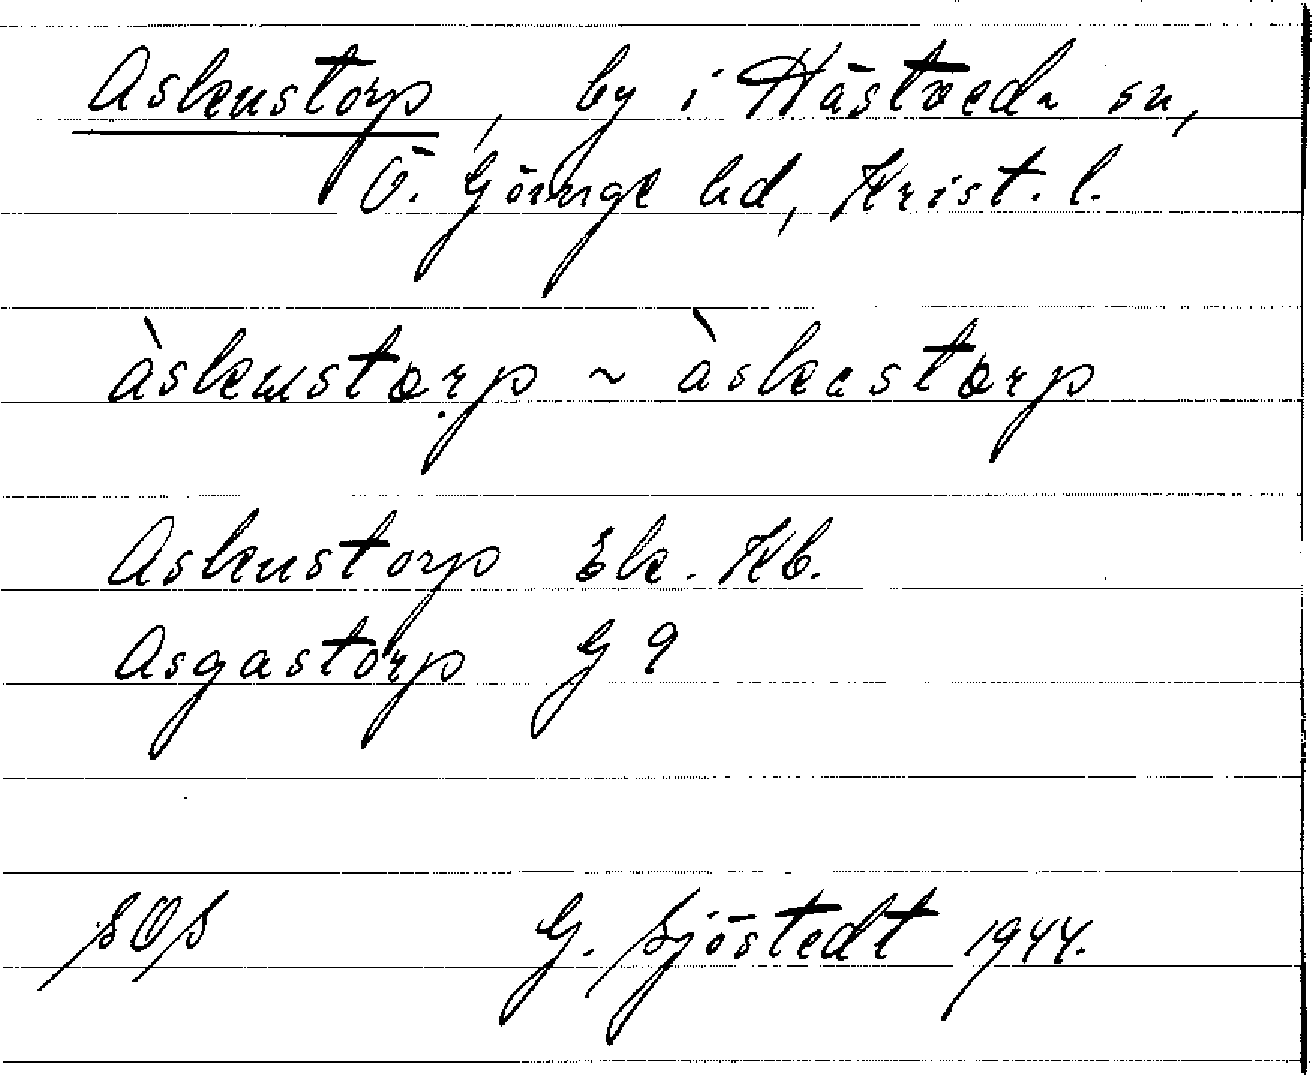 Askenstorp, by i Hästveda sn,
Ö. Göinge hd, Krist. l.
àskenstorp ~ àskastorp
Askenstorp Ek. Kb.
Asgastorp G 9
SOS G. Sjöstedt 1944.